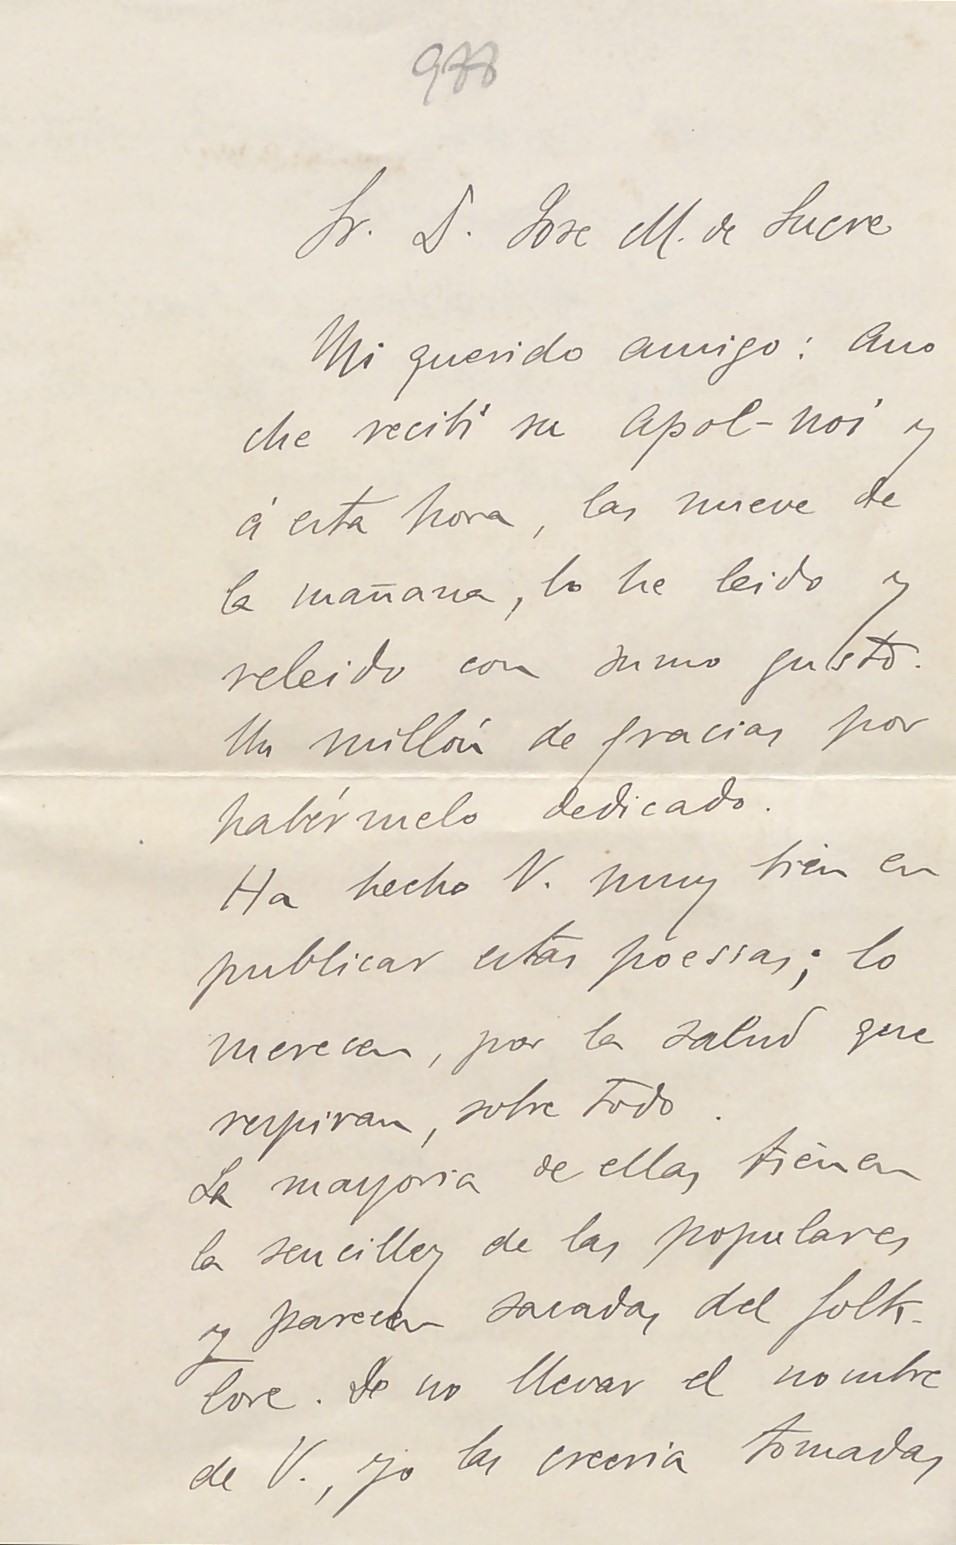 988
Sr. D. Jose M. de Sucre
Mi querido amigo: Ano
che recibí su Apol-noi y
á esta hora, las nueve de
la mañana, lo he leido y
releido con sumo gusto.
Un millón de gracias por
habérmelo dedicado.
Ha hecho V. muy bien en
publicar estas poesias; lo
merecen, por la salud que
respiran, sobre todo.
La mayoria de ellas tienen
la sencillez de las populares
y parecen sacadas del folk-
lore. De no llevar el nombre
de V., yo las creeria tomadas